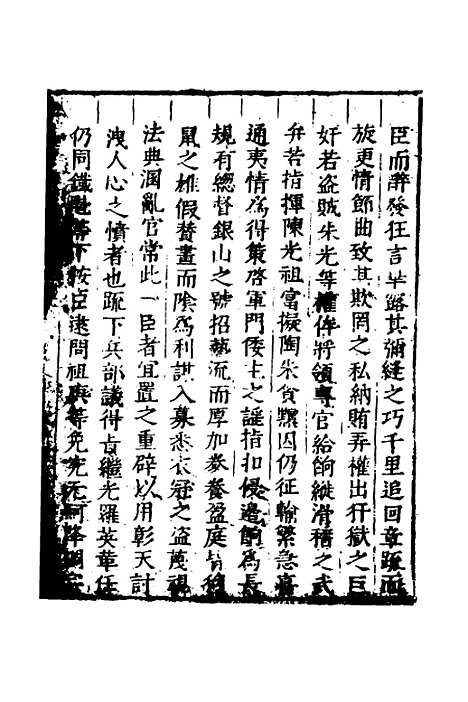 臣而辭發狂言畢露其彌縫之巧千里追回章疏而
旋更情節曲致其欺罔之私納賄弄權出犴獄之巨
奸若盜賊朱光等權倖將領專官給餉縱滑稽之武
弁若指揮陳光祖富擬陶朱貪驟因仍征輸縈急喜
通夷情為得策啓軍門倭主之謡指扣侵邉餉為長
規有總督銀山之號招藝流而厚加豢養盈庭皆
鼠之雄假賛畫而陰為利謀入幕悉衣冠之盜蔑視
法典溷亂官常此一臣者宜置之重辟以用彰天討
洩人心之憤者也疏下兵部議得戚繼光羅英革任
仍同錢 等下按臣逮問祖庚等免究 降調